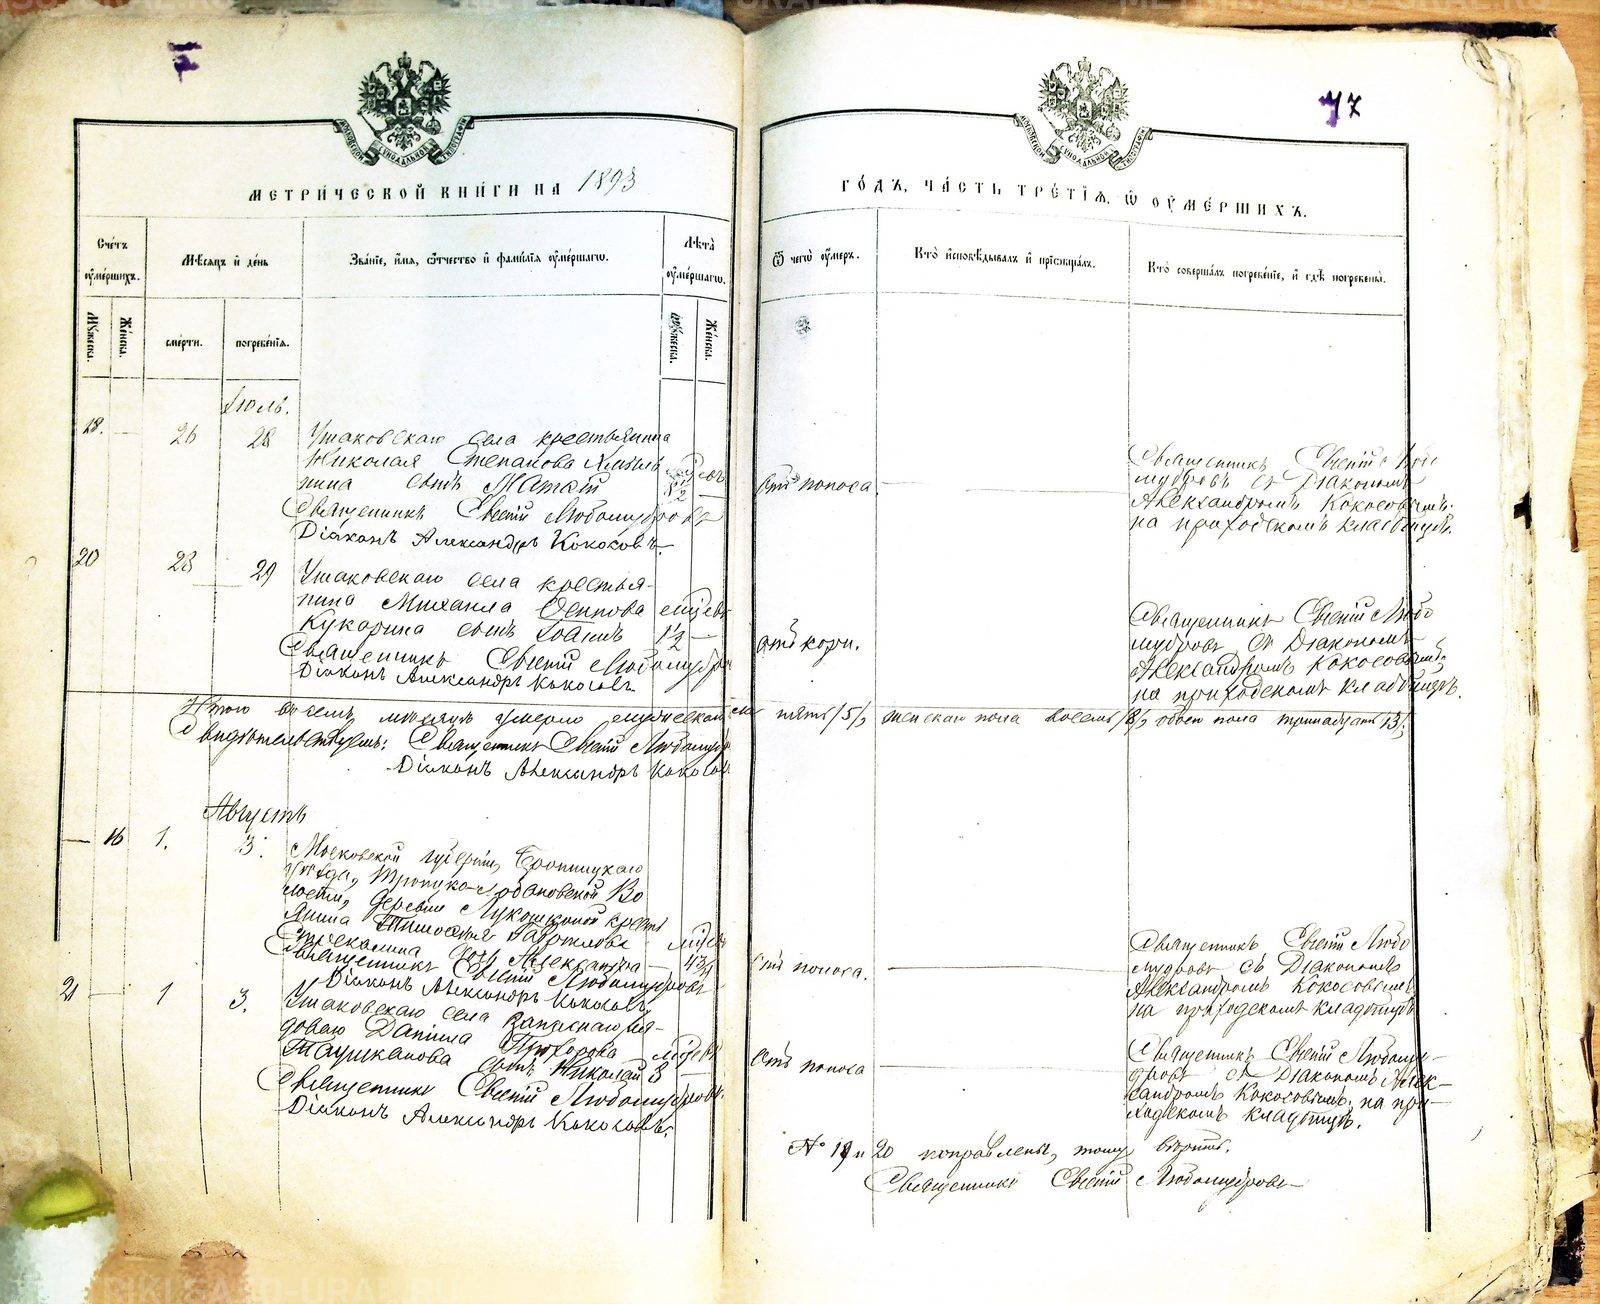 МЕТРИ́ЧЕСКОЙ КНИ́ГИ НА 1893
ГО́ДЪ, ЧА́СТЬ ТРЕ́ТІѦ, Ѿ ОУМЕ́РШИХЪ.
77
МОСКОВСКОЙ СѴНОДАЛЬНОЙ ТИПОГРАФІИ
МОСКОВСКОЙ СѴНОДАЛЬНОЙ ТИПОГРАФІИ
Сче́тъ оуме́ршихъ.
Мѣсяцъ и день
Званіе, имя, отчество и фамилія оумершагѡ.
Лѣта оумершагѡ.
Ѿ чегѡ оумеръ.
Кто исповѣдывалъ и пріобщалъ.
Кто совершалъ погребеніе, и гдѣ погребены.
Мужеска.
Женска.
смерти.
погребенія.
Мужеска.
Женска.
Іюль.
26 28 Ушаковскаго села крестьянина
Николая Степанова
сынъ
Священникъ Евгеній Любомудровъ
Діаконъ Александръ Кокосовъ.
Отъ поноса
Священникъ Евгеній Любо
мудровъ съ Діакономъ
Александромъ Кокосовымъ.
на приходскомъ кладбищѣ.
20 28 29 Ушаковскаго села крестья-
нина Михаила Осипова
Кукарина сынъ Іоаннъ 1½
Священникъ Евгеній Любомудровъ
Діаконъ Александръ Кокосовъ.
отъ кори.
Священникъ Евгеній Любо
мудровъ съ Діакономъ
Александромъ Кокосовымъ
на приходскомъ кладбищѣ.
Итого въ семъ мѣсяцѣ умерло мужескаго пять /5/, женскаго пола восемь /8/, обоего пола тринадцать 13/.
Свидѣтельствуемъ: Священникъ Евгеній Любомудр
Діаконъ Александръ Кокосов
Августъ
16 1. 3. Московской губерніи, Бронницкаго
уѣзда, Троицко-Лобановской Во
лости, деревни Лукошкиной кресть
янина Тимофея Гаврилова
дочь Александра
Священникъ Евгеній Любомудровъ
Діаконъ Александръ Кокосовъ
Отъ поноса.
Священникъ Евгеній Любо
мудровъ съ Діакономъ
Александромъ Кокосовымъ
на приходскомъ кладбищѣ
21 1 3. Ушаковскаго села запаснаго ря-
доваго Даніила Прохорова
Таушканова сынъ Николай 3
Священникъ Евгеній Любомудровъ.
Діаконъ Александръ Кокосовъ.
Отъ поноса
Священникъ Евгеній Любому-
дровъ съ Діакономъ Алек-
сандромъ Кокосовымъ, на при-
ходскомъ кладбищѣ.
№ 19 и 20 поправлены, тому вѣрить.
Священникъ Евгеній Любомудровъ